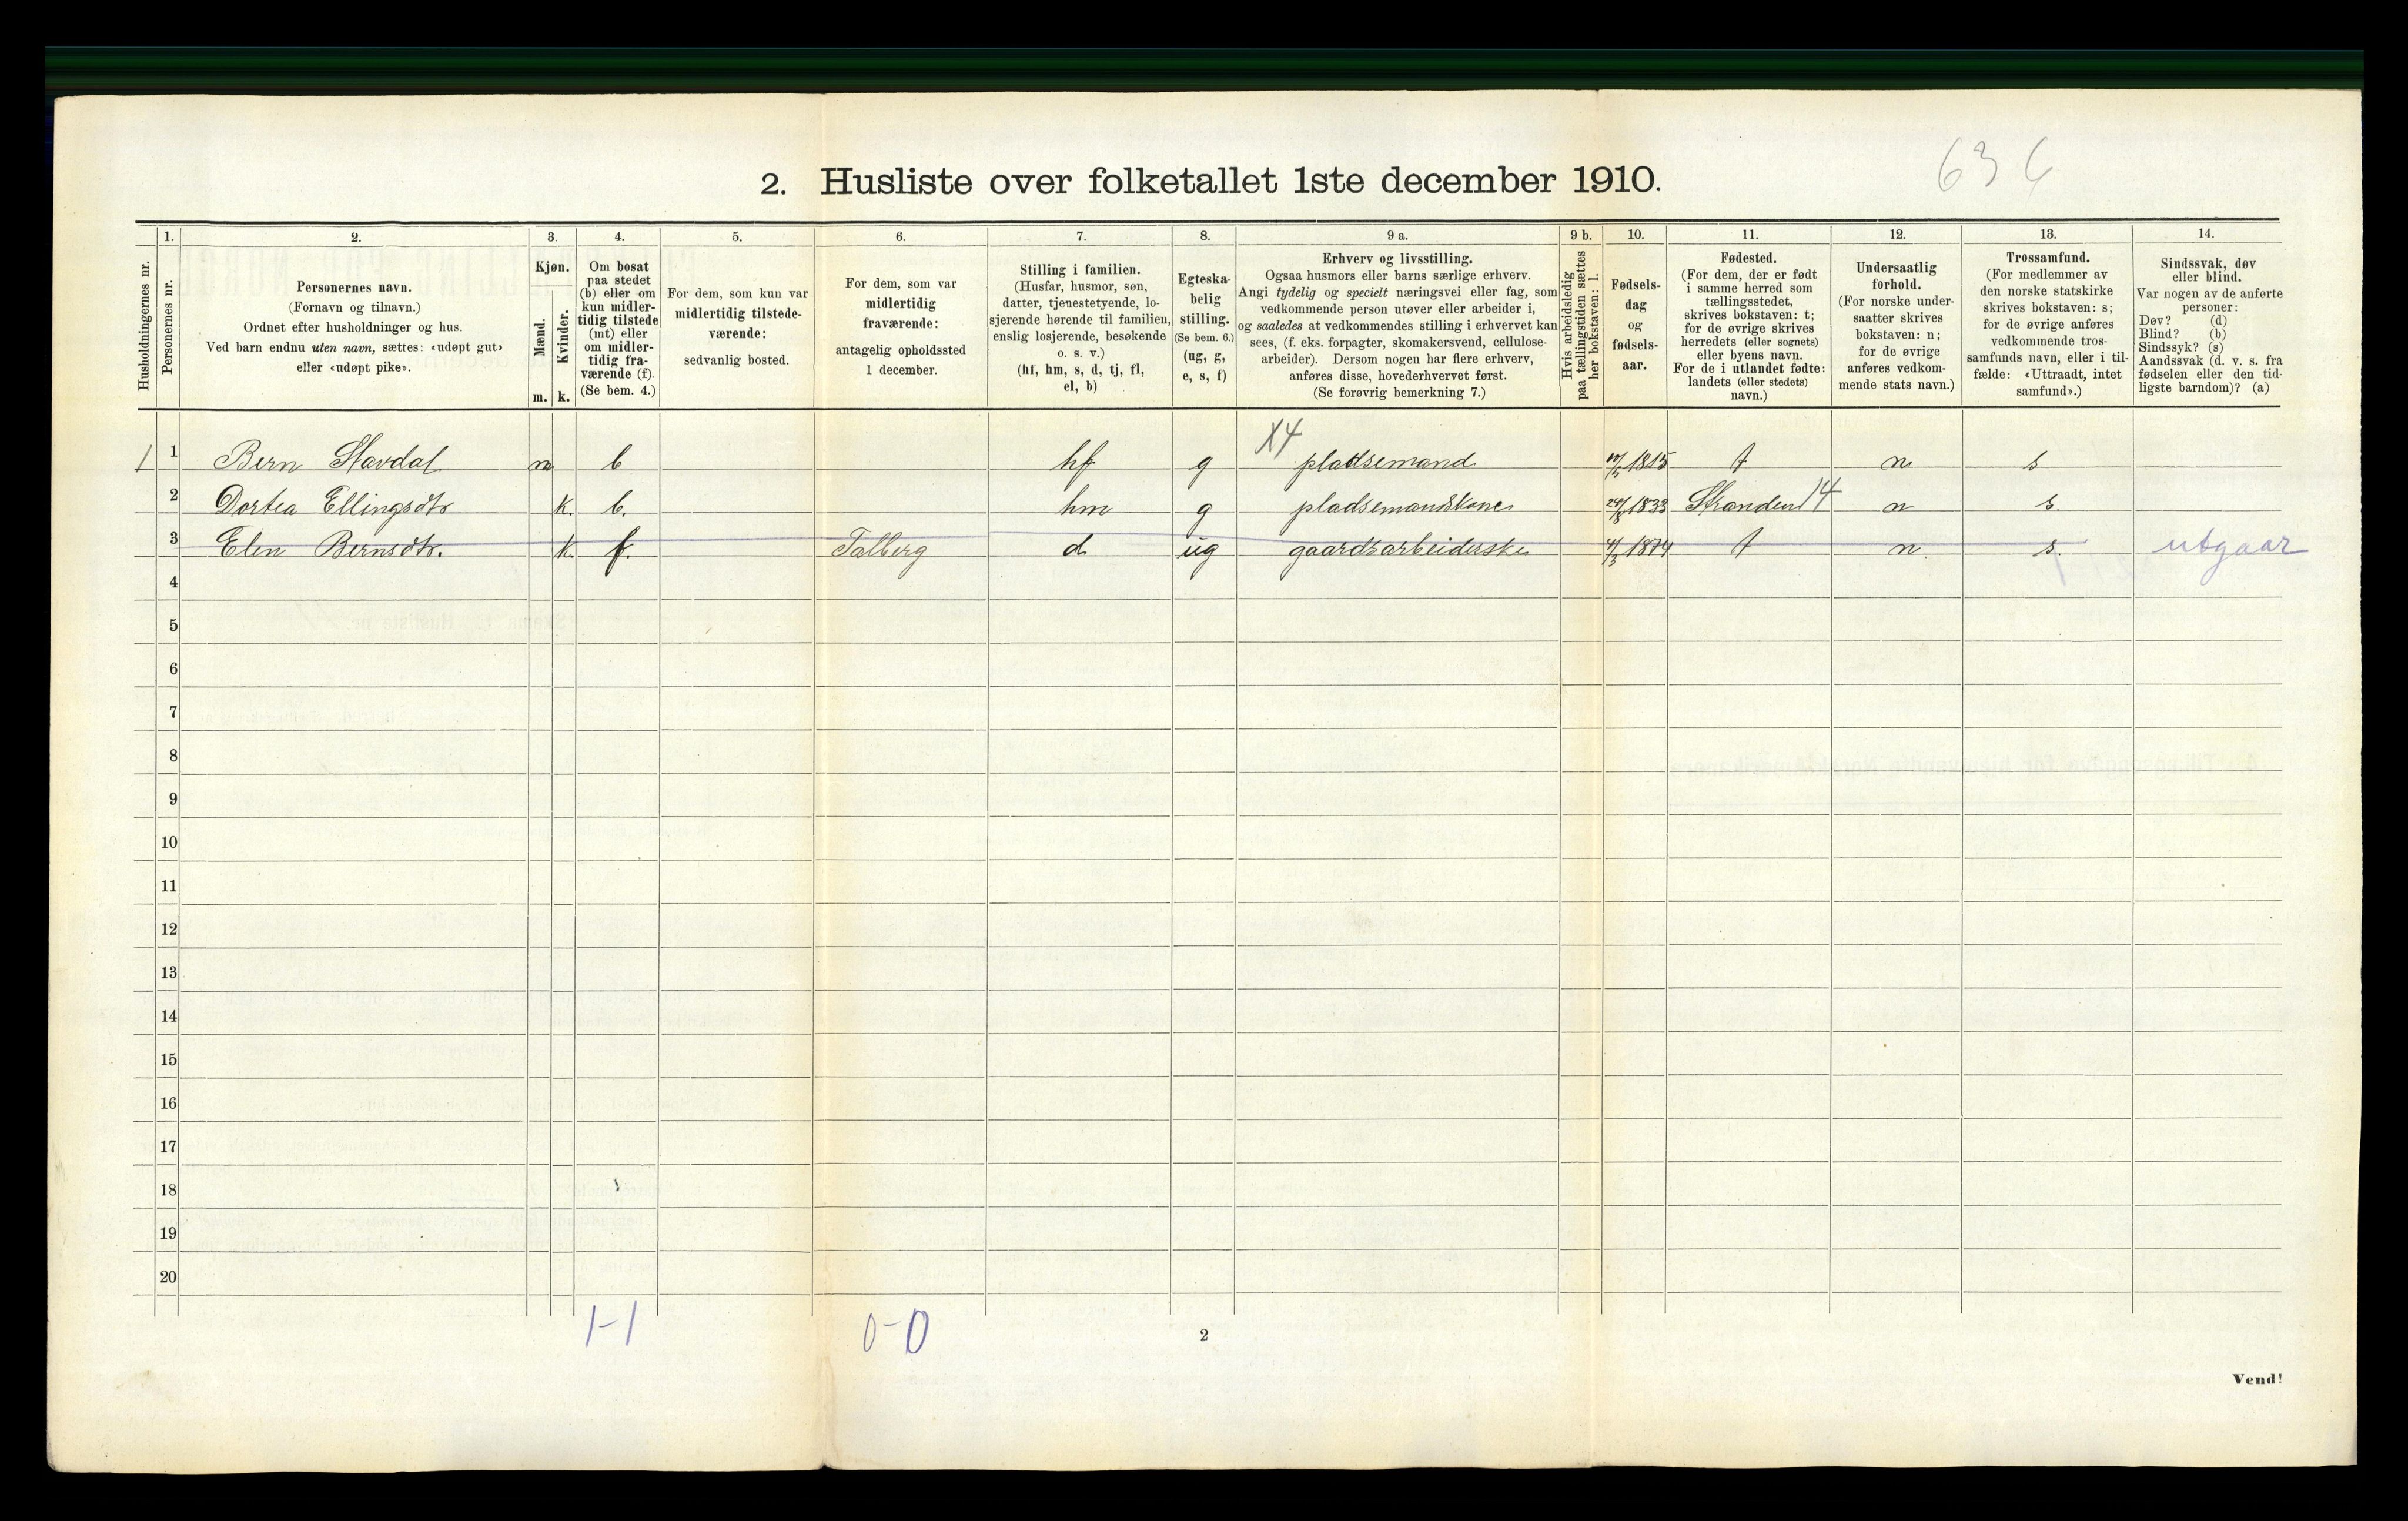 63 6
2. Husliste over folketallet 1ste december 1910.
1. 2. 3. 4. 5. 6. 7. 8. 9 a. 9 b. 10. 11. 12. 13. 14.
Husholdningernes nr.
Personernes nr.
Personernes navn.
(Fornavn og tilnavn.)
Ordnet efter husholdninger og hus.
Ved barn endnu uten navn, sættes: «udøpt gut»
eller «udøpt pike».
Kjøn.
Mænd.
Kvinder.
m. k.
Om bosat
paa stedet
(b) eller om
kun midler-
tidig tilstede
(mt) eller
om midler-
tidig fra-
værende (f).
(Se bem. 4.)
For dem, som kun var
midlertidig tilstede-
værende:
sedvanlig bosted.
For dem, som var
midlertidig
fraværende:
antagelig opholdssted
1 december.
Stilling i familien.
(Husfar, husmor, søn,
datter, tjenestetyende, lo-
sjerende hørende til familien,
enslig losjerende, besøkende
o. s. v.)
(hf, hm, s, d, tj, fl,
el, b)
Egteska-
belig
stilling.
(Se bem. 6.)
(ug, g,
e, s, f)
Erhverv og livsstilling.
Ogsaa husmors eller barns særlige erhverv.
Angi tydelig og specielt næringsvei eller fag, som
vedkommende person utøver eller arbeider i,
og saaledes at vedkommendes stilling i erhvervet kan
sees, (f. eks. forpagter, skomakersvend, cellulose-
arbeider). Dersom nogen har flere erhverv,
anføres disse, hovederhvervet først.
(Se forøvrig bemerkning 7.)
Hvis arbeidsledig
paa tællingstiden sættes
her bokstaven: l.
Fødsels-
dag
og
fødsels-
aar.
Fødested.
(For dem, der er født
i samme herred som
tællingsstedet,
skrives bokstaven: t;
for de øvrige skrives
herredets (eller sognets)
eller byens navn.
For de i utlandet fødte:
landets (eller stedets)
navn.)
Undersaatlig
forhold.
(For norske under-
saatter skrives
bokstaven: n;
for de øvrige
anføres vedkom-
mende stats navn.)
Trossamfund.
(For medlemmer av
den norske statskirke
skrives bokstaven: s;
for de øvrige anføres
vedkommende tros-
samfunds navn, eller i til-
fælde: «Uttraadt, intet
samfund».)
Sindssvak, døv
eller blind.
Var nogen av de anførte
personer:
Døv? (d)
Blind? (b)
Sindssyk? (s)
Aandssvak (d. v. s. fra
fødselen eller den tid-
ligste barndom)? (a)
X4
1 1 Bern Stavdal m b hf g pladsemand 1815 t n s
2 Dortea Ellingsdtr k. b. hm g pladsemandskone 1833 Stranden 14 n s.
3 Elen Bernsdtr. k f. Talberg d ug gaardsarbeiderske 4/3 1874 t n s. utgaar
4
5
6
7
8
9
10
11
12
13
14
15
16
17
18
19
20
1-1 0-0
2
Vend!